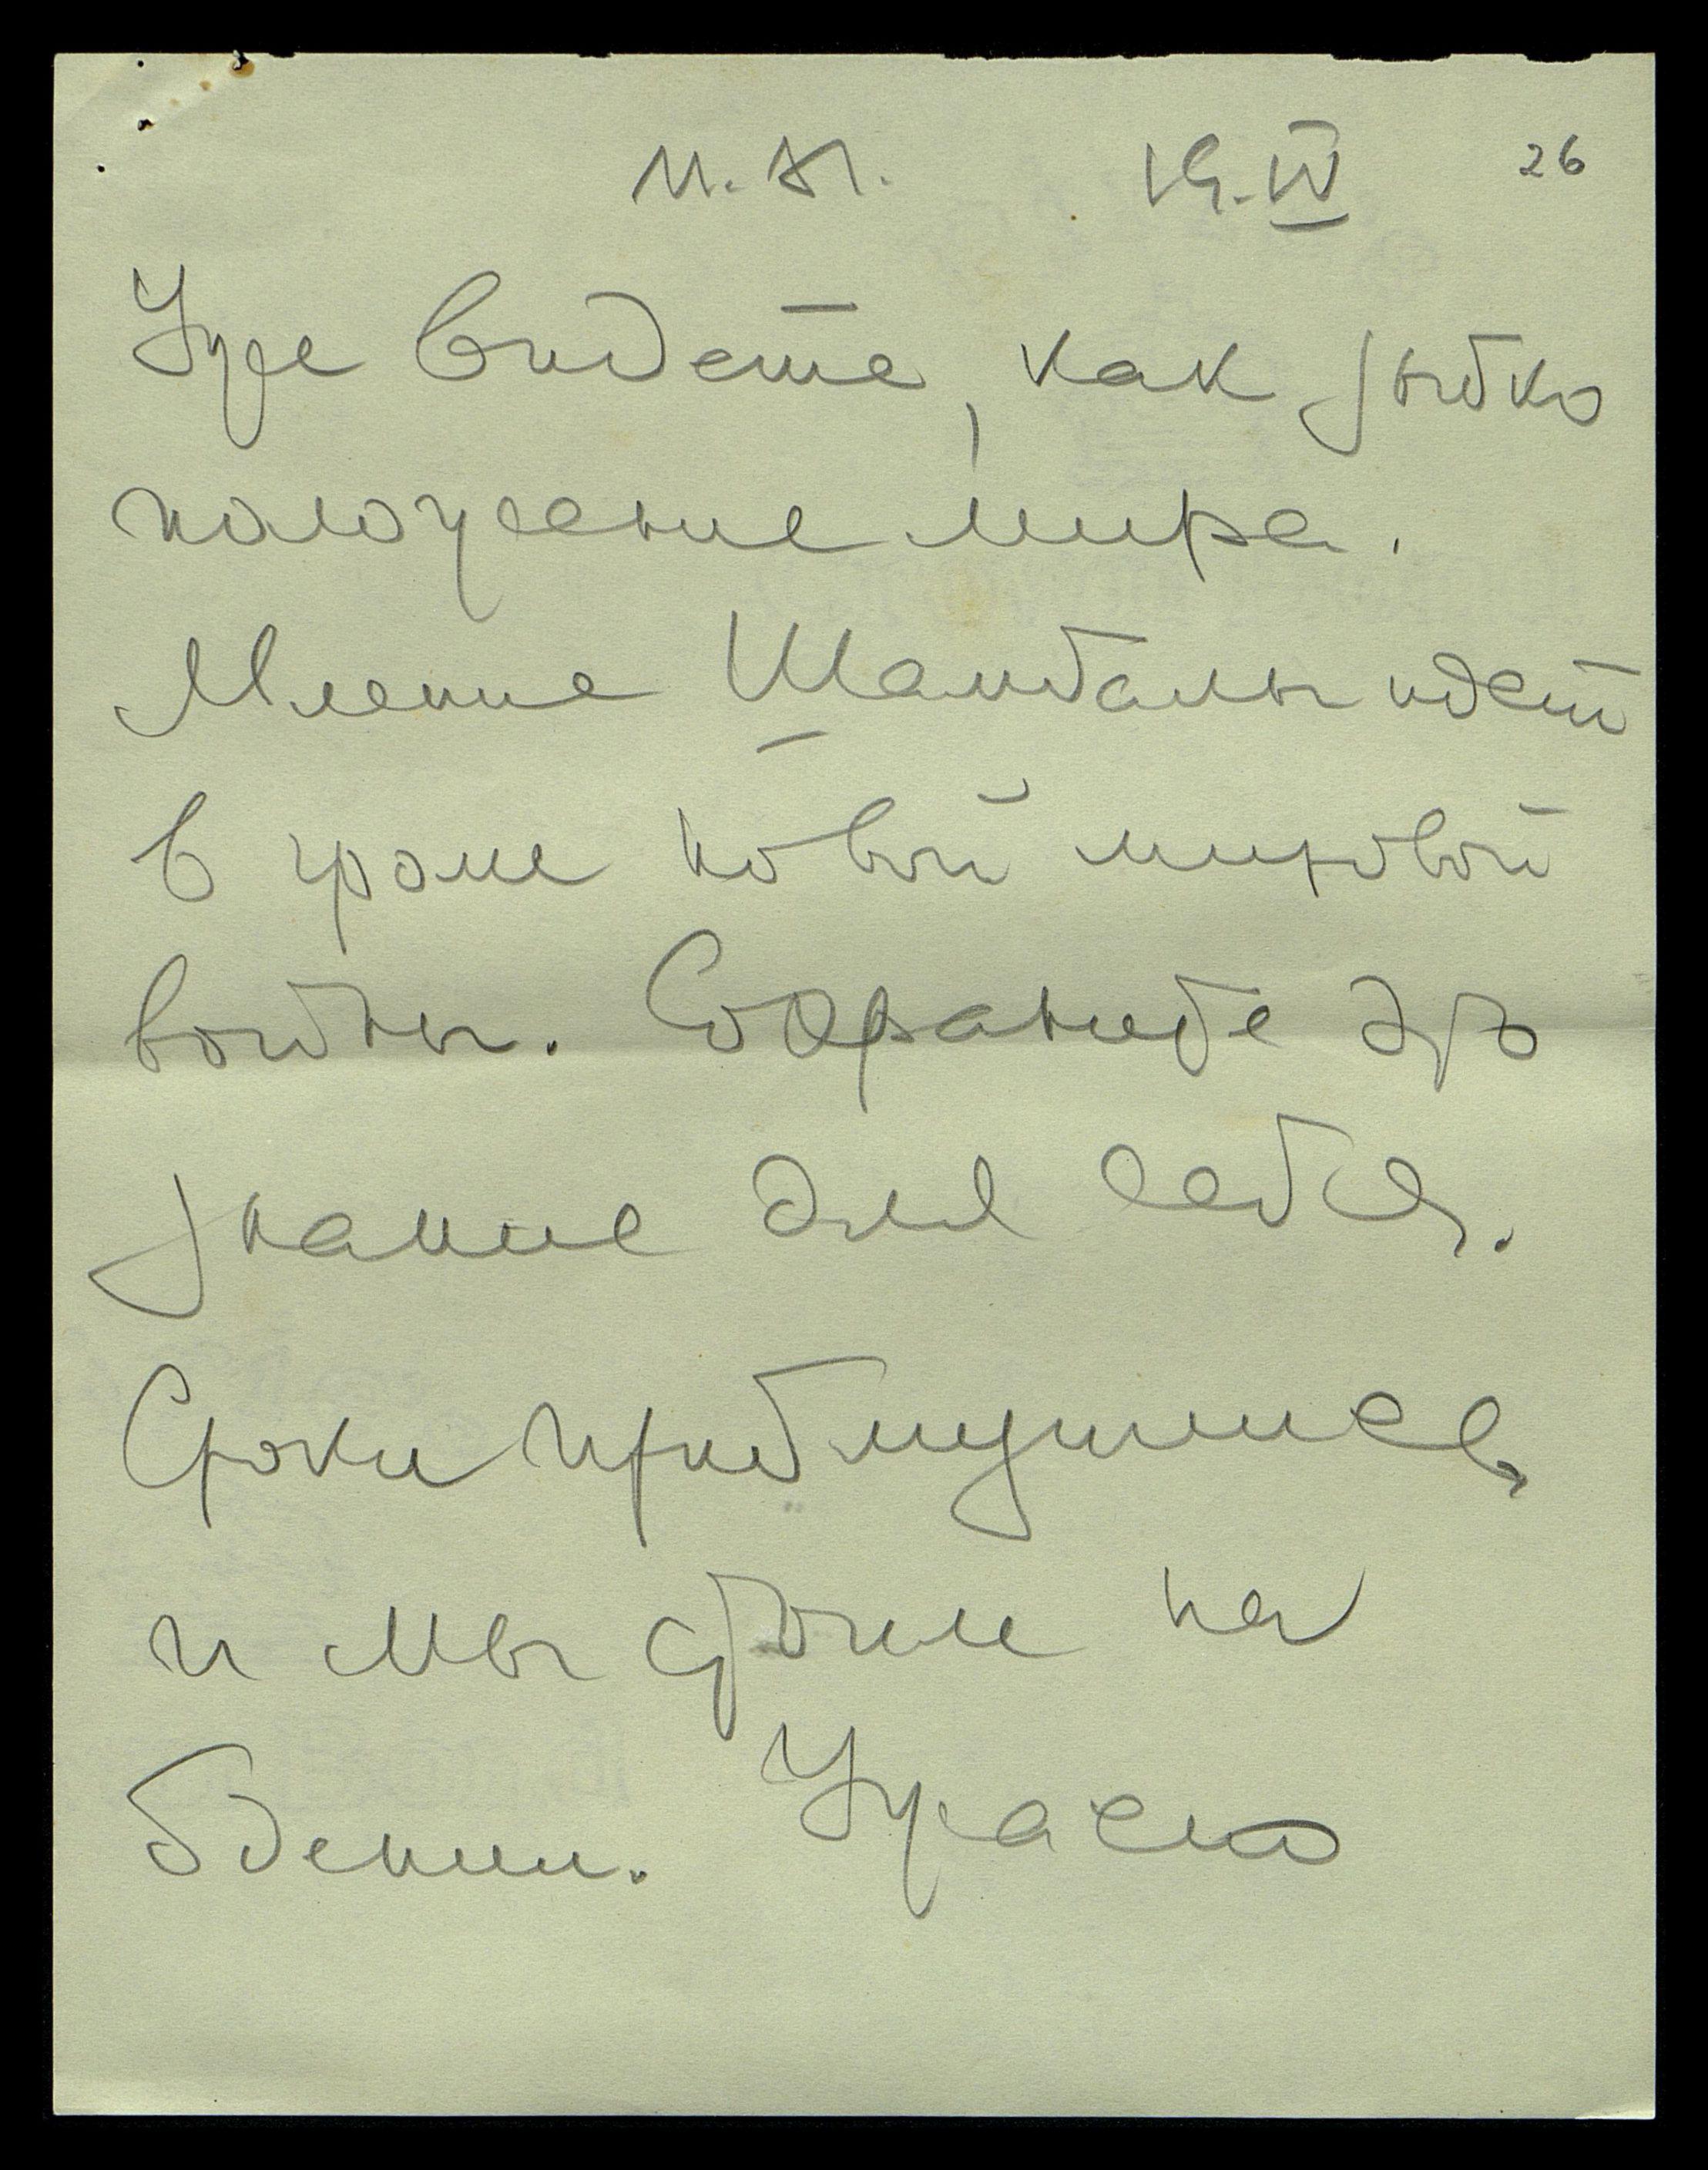 М.М. 19.IV 26
Уже видите, как зыбко
положение мира.
Явление Шамбалы идет
в громе новой мировой
войны. Сохраните это
знание для себя.
Сроки приблизились
и мы стоим на
бдении. Ужасно